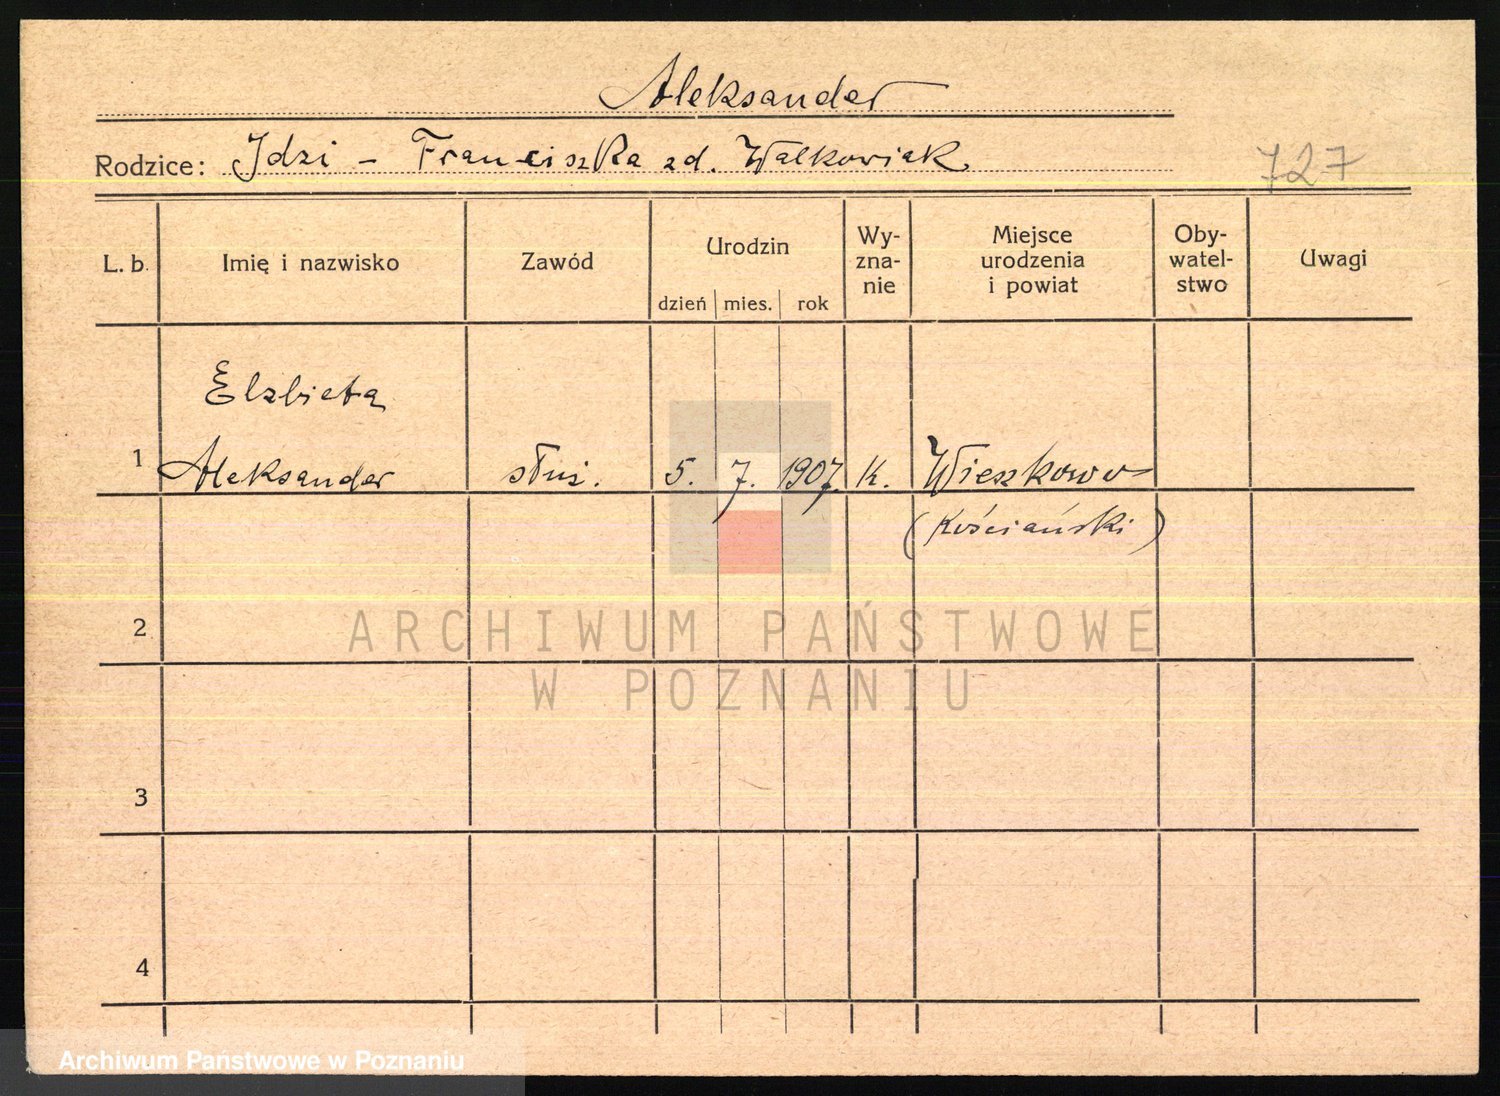 Aleksander
Rodzice: Idzi – Franciszka zd. Walkowiak
727
L. b. Imię i nazwisko Zawód Urodzin dzień mies. rok Wy-zna-nie Miejsce urodzenia i powiat Oby-watel-stwo Uwagi
Elżbieta
1 Aleksander służ. 5. 7. 1907. K. Wieszkowo
(Kościański)
2
ARCHIWUM PAŃSTWOWE
W POZNANIU
3
4
Archiwum Państwowe w Poznaniu